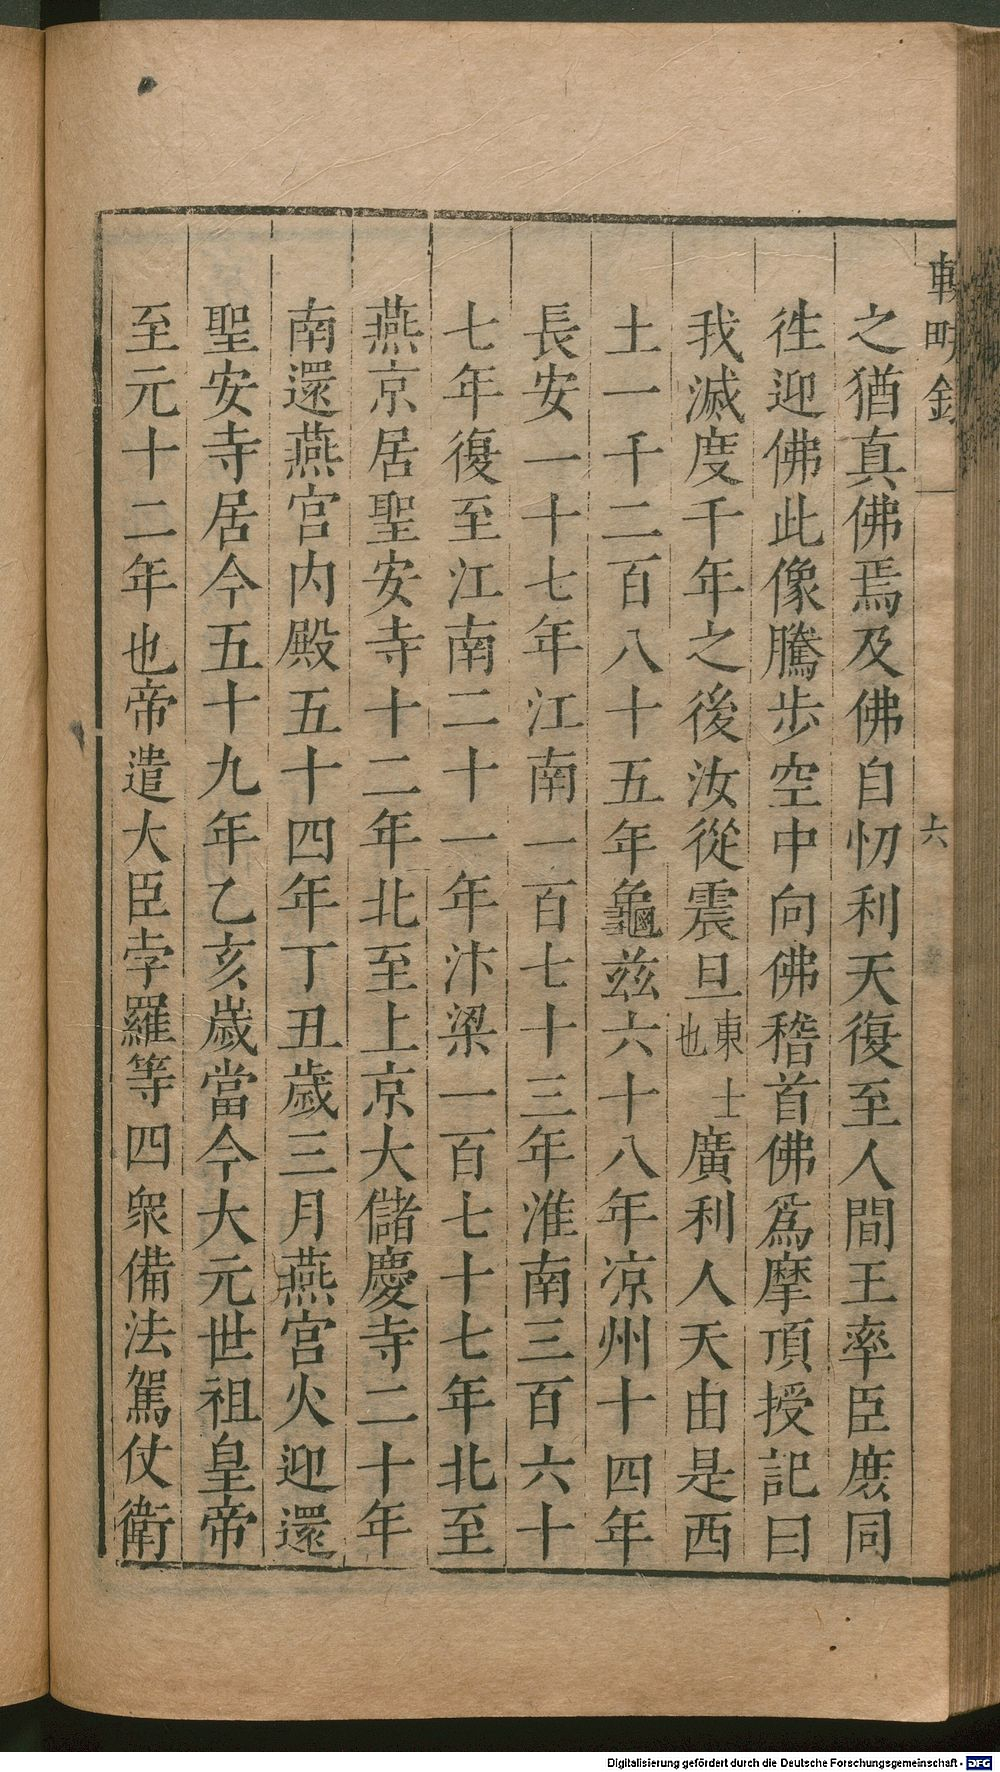 輟畊錄
六
之猶真佛焉及佛自忉利天復至人間王率臣庻同
徃迎佛此像騰步空中向佛稽首佛爲摩頂授記曰
我滅度千年之後汝從震旦東土也廣利人天由是西
土一千二百八十五年龜兹六十八年凉州十四年
長安一十七年江南一百七十三年淮南三百六十
七年復至江南二十一年汴梁一百七十七年北至
燕京居聖安寺十二年北至上京大儲慶寺二十年
南還燕宮内殿五十四年丁丑歲三月燕宮火迎還
聖安寺居今五十九年乙亥歲當今大元世祖皇帝
至元十二年也帝遣大臣孛羅等四衆備法駕仗衛
Digitalisierung gefördert durch die Deutsche Forschungsgemeinschaft - DFG